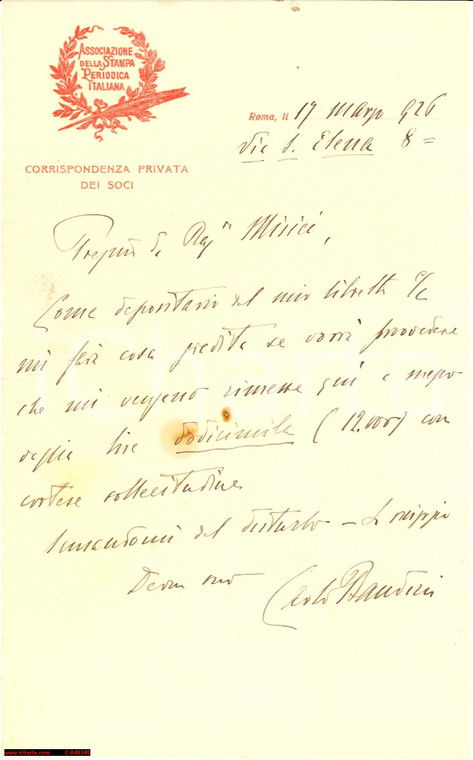 ASSOCIAZIONE
DELLA STAMPA
PERIODICA
ITALIANA
CORRISPONDENZA PRIVATA
DEI SOCI
Roma, li 17 marzo 926
Via S. Elena 8 =
Misici,
Come depositario del mio libretto c/c
mi farà cosa gradita se vorrà provvedere
che mi vengano rimesse qui a mezzo
vaglia lire dodicimila (12.000) con
cortese sollecitudine
Scusandomi del disturbo – La ringrazio
Devm suo
Carlo Bandini
www.icharta.com